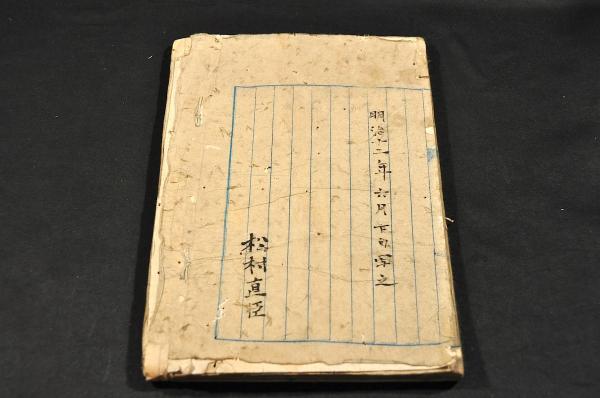 明治十二年六月下旬写之
松村直臣